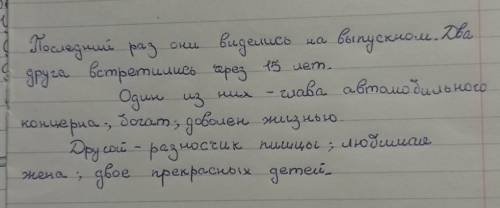 Последний раз они виделись на выпускном. Два
друга встретились через 15 лет.
Один из них - глава автомобильного
концерна;, богат; доволен жизнью.
Другой - разносчик пиццы; любимая
жена; двое прекрасных детей.